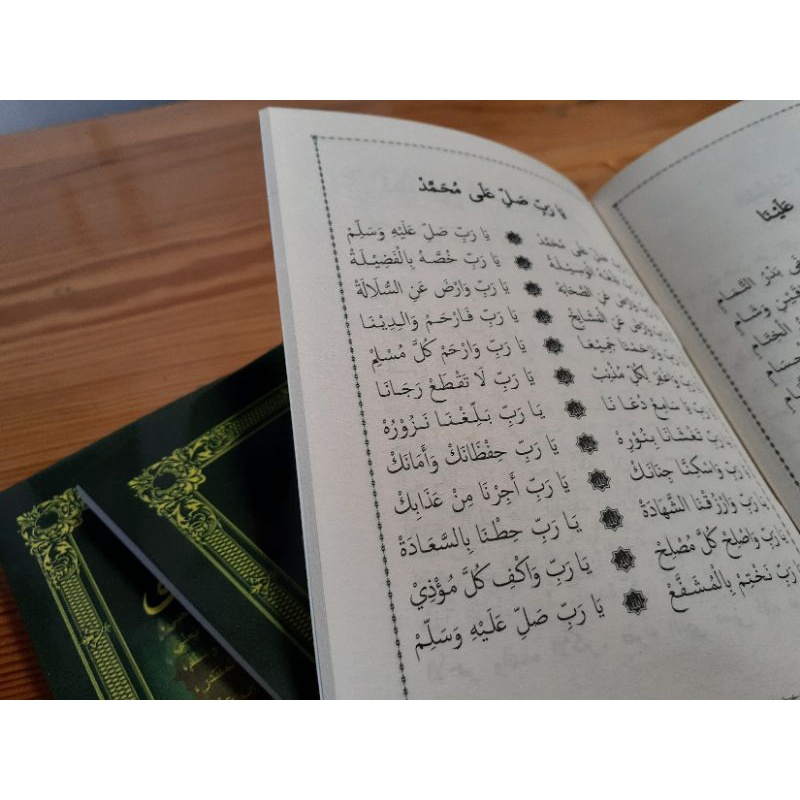 يَا رَبِّ صَلِّ عَلَى مُحَمَّدْ
يَا رَبِّ صَلِّ عَلَى مُحَمَّدْ يَا رَبِّ صَلِّ عَلَيْهِ وَسَلِّمْ
الْوَسِيْلَةْ يَا رَبِّ خُصَّهُ بِالْفَضِيْلَةْ
يَا رَبِّ وَارْضَ عَنِ الصَّحَابَةْ يَا رَبِّ وَارْضَ عَنِ السُّلَالَةْ
يَا رَبِّ وَارْضَ عَنِ الْمَشَايِخْ يَا رَبِّ فَارْحَمْ وَالِدِيْنَا
يَا رَبِّ وَارْحَمْنَا جَمِيْعًا يَا رَبِّ وَارْحَمْ كُلَّ مُسْلِمْ
يَا رَبِّ وَاغْفِرْ لِكُلِّ مُذْنِبْ يَا رَبِّ لَا تَقْطَعْ رَجَانَا
يَا رَبِّ يَا سَامِعْ دُعَانَا يَا رَبِّ بَلِّغْنَا نَزُوْرُهْ
يَا رَبِّ تَغْشَانَا بِنُوْرِهْ يَا رَبِّ حِفْظَانَكْ وَأَمَانَكْ
يَا رَبِّ وَاسْكِنَّا جِنَانَكْ يَا رَبِّ أَجِرْنَا مِنْ عَذَابِكْ
يَا رَبِّ وَارْزُقْنَا الشَّهَادَةْ يَا رَبِّ حِطْنَا بِالسَّعَادَةْ
يَا رَبِّ وَاصْلِحْ كُلَّ مُصْلِحْ يَا رَبِّ وَاكْفِ كُلَّ مُؤْذِيْ
يَا رَبِّ نَخْتِمْ بِالْمُشَفَّعْ يَا رَبِّ صَلِّ عَلَيْهِ وَسَلِّمْ